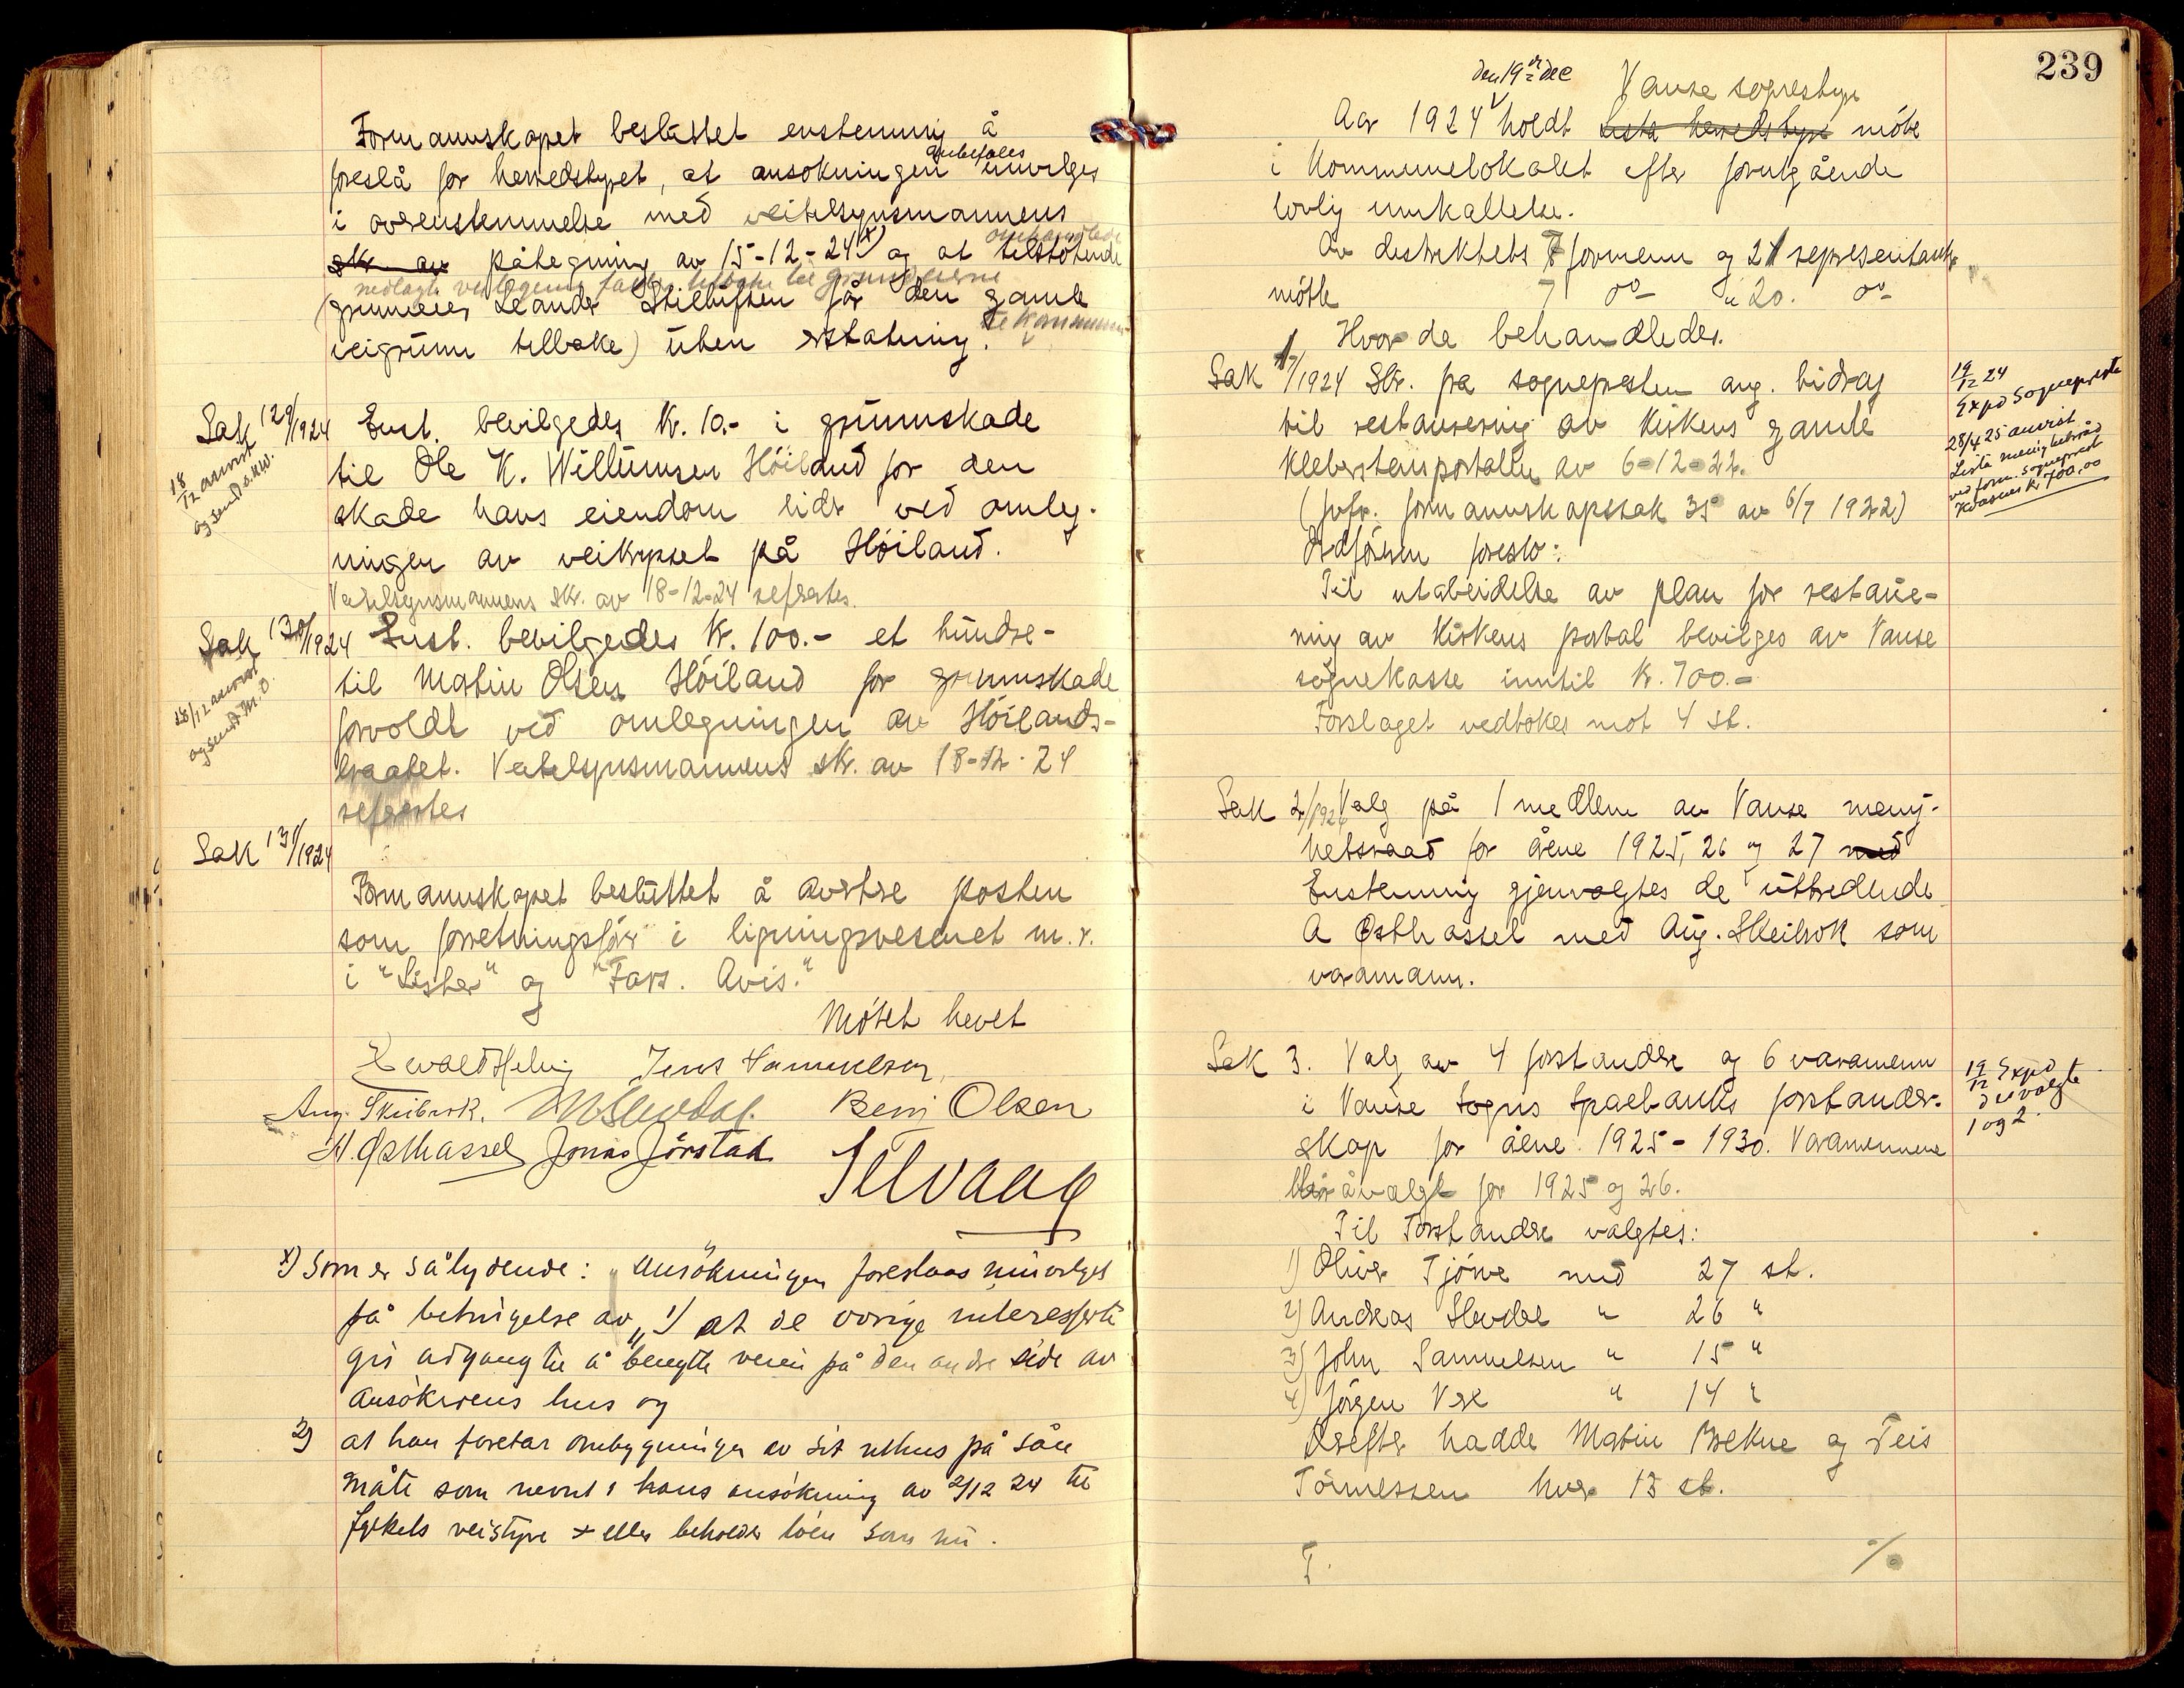 Formannskapet besluttet enstemmig å
foreslå for herredstyret, at ansøkningen anbefales innvilges
i overenstemmelse med veitilsynsmannens
skr. av påtegning av 15-12-24 x) og at tilstøtende
grunneier Leander får den gamle
veigrunn tilbake) uten erstatning.
Sak 129/1924 Enst. bevilgedes kr. 10.- i grunnskade
til Ole K. Willumsen Höiland for den
skade hans eiendom lidr ved omleg-
ningen av veikrysset på Höiland.
Veitilsynsmannens skr. av 18-12-24 refertes.
18/12 anvist
og sendt O.K.W.
Sak 130/1924 Enst. bevilgedes kr. 100.- et hundre-
til Matin Olsen Höiland for grunnskade
forvoldt ved omlegningen av Höilands-
kraatet. Veitilsynsmannens skr. av 18-12-24
refertes
18/12 anvist
og sendt M.O.
Sak 131/1924
Formannskapet besluttet å avertere posten
som forretningsför i ligningsvesenet m.v.
i "Lister" og "Fars. Avis."
Mötet hevet
Jens Samuelsen
Aug. Skeibrok. Benj Olsen
A. Østhassel Jonas Jörstad
x) Som er sålydende: "Ansökningen foreslaas innvilget
på betingelse av, 1) at de övrige interesserte
gis adgang til å benytte veien på den andre side av
ansökerens hus og
2) at han foretar ombygningen av sit uthus på sån
måte som nevnt i hans ansökning av 2/12 24 til
fylkets veistyre + eller beholder löen som nu.
239
den 19de dec Vanse sognestyre
Aar 1924 holdt Lista herredstyre möte
i Kommunelokalet efter forutgående
lovlig innkallelse.
Av destriktets 7 formenn og 21 representanter
mötte 7 do " 20. do
Hvor da behandledes.
Sak 1/1924 Skr. fra sognepresten ang. bidrag
til restaurering av kirkens gamle
Kleberstensportaller av 6-12-22.
(jvfr. formannskapssak 35 av 6/7 1922)
Ordføreren foreslo:
Til utabeidelse av plan for restaue-
ring av kirkens portal bevilges av Vanse
sognekasse inntil kr. 700.-
Forslaget vedtokes mot 4 st.
19/12 24
Expd Sogneprest
28/4 25 anvist
Lista menighetsråd
ved form. sogneprest
kr 700,00
Sak 2/1924 Valg på 1 medlem av Vanse menig-
hetsraad for årene 1925, 26 og 27 med
Enstemmig gjenvalgtes de uttredende
A Østhassel med Aug. Skeibrok som
varamann.
Sak 3. Valg av 4 forstandere og 6 varamenn
i Vanse Sogns Sparebanks forstander-
skap for årene 1925-1930. Varamennene
valgt for 1925 og 26.
Til Forstandere valgtes:
1) Oliver Tjörve med 27 st.
2) Andreas Slevdal " 26 "
3) John Samuelsen " 15 "
4) Jörgen Vere " 14 "
Derefter hadde Matin Brekne og Teis
Tönnessen hver 13 st.
19/12 Expd
de valgte
1 og 2.
T.
%